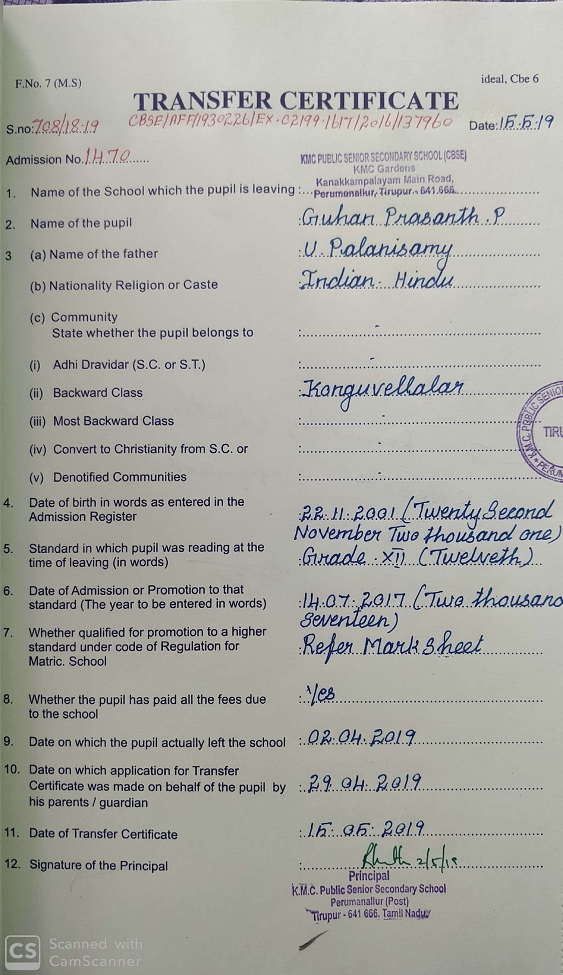 F.No. 7 (M.S)
ideal, Cbe 6
TRANSFER CERTIFICATE
S.no:708/18-19 CBSE/AFF/1930226/EX-02199-1617/2016/137960 Date:15.5.19
Admission No.1470......
KMC PUBLIC SENIOR SECONDARY SCHOOL (CBSE)
KMC Gardens
Kanakkampalayam Main Road,
1. Name of the School which the pupil is leaving : Perumanallur, Tirupur - 641 666.
2. Name of the pupil : Guhan Prasanth .P
3 (a) Name of the father : U. Palanisamy
(b) Nationality Religion or Caste : Indian - Hindu
(c) Community
State whether the pupil belongs to : -
(i) Adhi Dravidar (S.C. or S.T.) : -
(ii) Backward Class : Konguvellalar
(iii) Most Backward Class : -
(iv) Convert to Christianity from S.C. or : -
(v) Denotified Communities : -
4. Date of birth in words as entered in the
Admission Register : 22.11.2001 (Twenty Second
November Two thousand one)
5. Standard in which pupil was reading at the
time of leaving (in words) : Grade - XII (Twelveth)
6. Date of Admission or Promotion to that
standard (The year to be entered in words) : 14.07.2017 (Two thousand
Seventeen)
7. Whether qualified for promotion to a higher
standard under code of Regulation for : Refer Mark Sheet
Matric. School
8. Whether the pupil has paid all the fees due : Yes
to the school
9. Date on which the pupil actually left the school : 02.04.2019
10. Date on which application for Transfer
Certificate was made on behalf of the pupil by : 29.04.2019
his parents / guardian
11. Date of Transfer Certificate : 15.05.2019
12. Signature of the Principal :
Principal
K.M.C. Public Senior Secondary School
Perumanallur (Post)
Tirupur - 641 666. Tamil Nadu
CS Scanned with
CamScanner